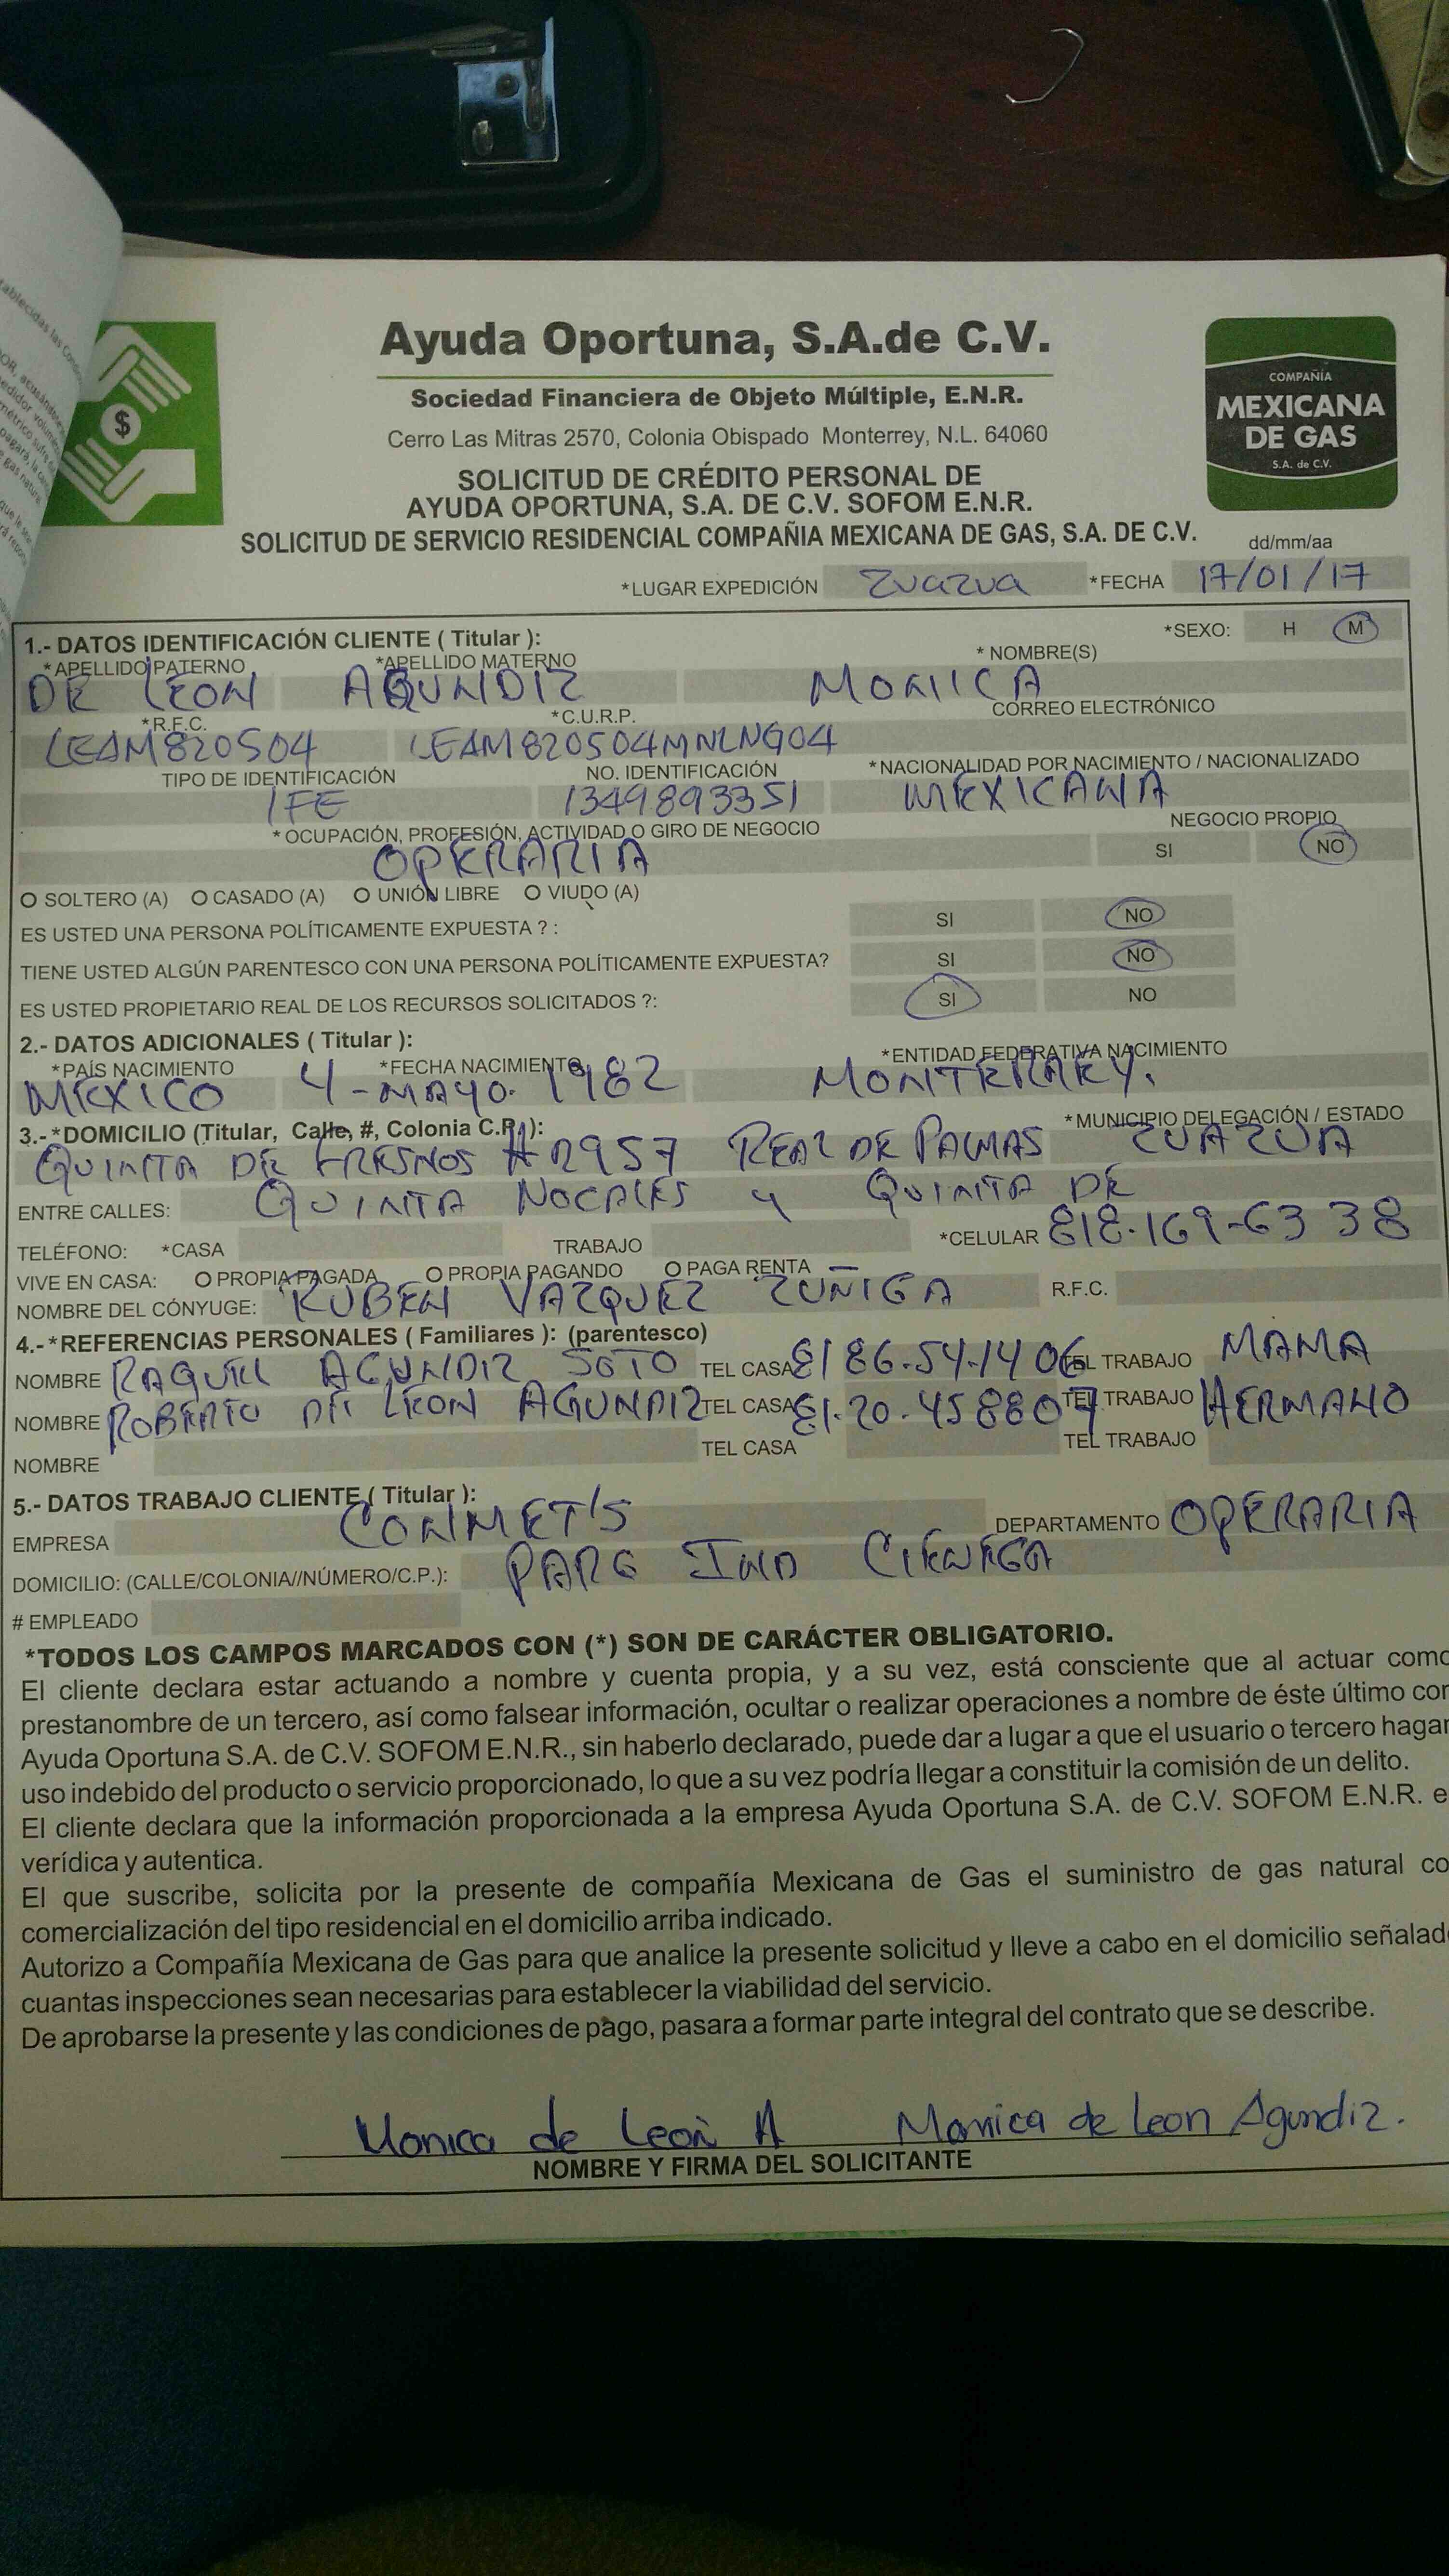 Ayuda Oportuna, S.A.de C.V.
Sociedad Financiera de Objeto Múltiple, E.N.R.
Cerro Las Mitras 2570, Colonia Obispado Monterrey, N.L. 64060
SOLICITUD DE CRÉDITO PERSONAL DE
AYUDA OPORTUNA, S.A. DE C.V. SOFOM E.N.R.
SOLICITUD DE SERVICIO RESIDENCIAL COMPAÑIA MEXICANA DE GAS, S.A. DE C.V.
$
COMPAÑÍA
MEXICANA
DE GAS
S.A. de C.V.
dd/mm/aa
*LUGAR EXPEDICIÓN Zuazua *FECHA 17/01/17
1.- DATOS IDENTIFICACIÓN CLIENTE ( Titular ): *SEXO: H M
*APELLIDO PATERNO *APELLIDO MATERNO * NOMBRE(S)
DE LEON AGUNDIZ MONICA
*R.F.C. *C.U.R.P. CORREO ELECTRÓNICO
LEAM820504 LEAM820504MNLNG04
TIPO DE IDENTIFICACIÓN NO. IDENTIFICACIÓN *NACIONALIDAD POR NACIMIENTO / NACIONALIZADO
IFE 1349893351 MEXICANA
* OCUPACIÓN, PROFESIÓN, ACTIVIDAD O GIRO DE NEGOCIO NEGOCIO PROPIO
OPERARIA SI NO
O SOLTERO (A) O CASADO (A) O UNIÓN LIBRE O VIUDO (A)
ES USTED UNA PERSONA POLÍTICAMENTE EXPUESTA ? : SI NO
TIENE USTED ALGÚN PARENTESCO CON UNA PERSONA POLÍTICAMENTE EXPUESTA? SI NO
ES USTED PROPIETARIO REAL DE LOS RECURSOS SOLICITADOS ?: SI NO
2.- DATOS ADICIONALES ( Titular ):
*PAÍS NACIMIENTO *FECHA NACIMIENTO *ENTIDAD FEDERATIVA NACIMIENTO
MEXICO 4-MAYO. 1982 MONTERREY.
3.-*DOMICILIO (Titular, Calle, #, Colonia C.P.): *MUNICIPIO DELEGACIÓN / ESTADO
QUINTA DE FRESNOS #2957 REAL DE PALMAS ZUAZUA
ENTRE CALLES: QUINTA NOGALES y QUINTA DE
TELÉFONO: *CASA TRABAJO *CELULAR 818-169-63 38
VIVE EN CASA: O PROPIA PAGADA O PROPIA PAGANDO O PAGA RENTA
NOMBRE DEL CÓNYUGE: RUBEN VAZQUEZ ZUÑIGA R.F.C.
4.-*REFERENCIAS PERSONALES ( Familiares ): (parentesco)
NOMBRE RAQUEL AGUNDIZ SOTO TEL CASA 8186.54.1406 TEL TRABAJO MAMA
NOMBRE ROBERTO DE LEON AGUNDIZ TEL CASA 81.20.458807 TEL TRABAJO HERMANO
NOMBRE TEL CASA TEL TRABAJO
5.- DATOS TRABAJO CLIENTE ( Titular ):
EMPRESA CONMET'S DEPARTAMENTO OPERARIA
DOMICILIO: (CALLE/COLONIA//NÚMERO/C.P.): PARQ IND CIENEGA
# EMPLEADO
*TODOS LOS CAMPOS MARCADOS CON (*) SON DE CARÁCTER OBLIGATORIO.
El cliente declara estar actuando a nombre y cuenta propia, y a su vez, está consciente que al actuar como
prestanombre de un tercero, así como falsear información, ocultar o realizar operaciones a nombre de éste último con
Ayuda Oportuna S.A. de C.V. SOFOM E.N.R., sin haberlo declarado, puede dar a lugar a que el usuario o tercero hagan
uso indebido del producto o servicio proporcionado, lo que a su vez podría llegar a constituir la comisión de un delito.
El cliente declara que la información proporcionada a la empresa Ayuda Oportuna S.A. de C.V. SOFOM E.N.R. e
verídica y autentica.
El que suscribe, solicita por la presente de compañía Mexicana de Gas el suministro de gas natural co
comercialización del tipo residencial en el domicilio arriba indicado.
Autorizo a Compañía Mexicana de Gas para que analice la presente solicitud y lleve a cabo en el domicilio señalad
cuantas inspecciones sean necesarias para establecer la viabilidad del servicio.
De aprobarse la presente y las condiciones de pago, pasara a formar parte integral del contrato que se describe.
Monica de Leon A Monica de Leon Agundiz.
NOMBRE Y FIRMA DEL SOLICITANTE